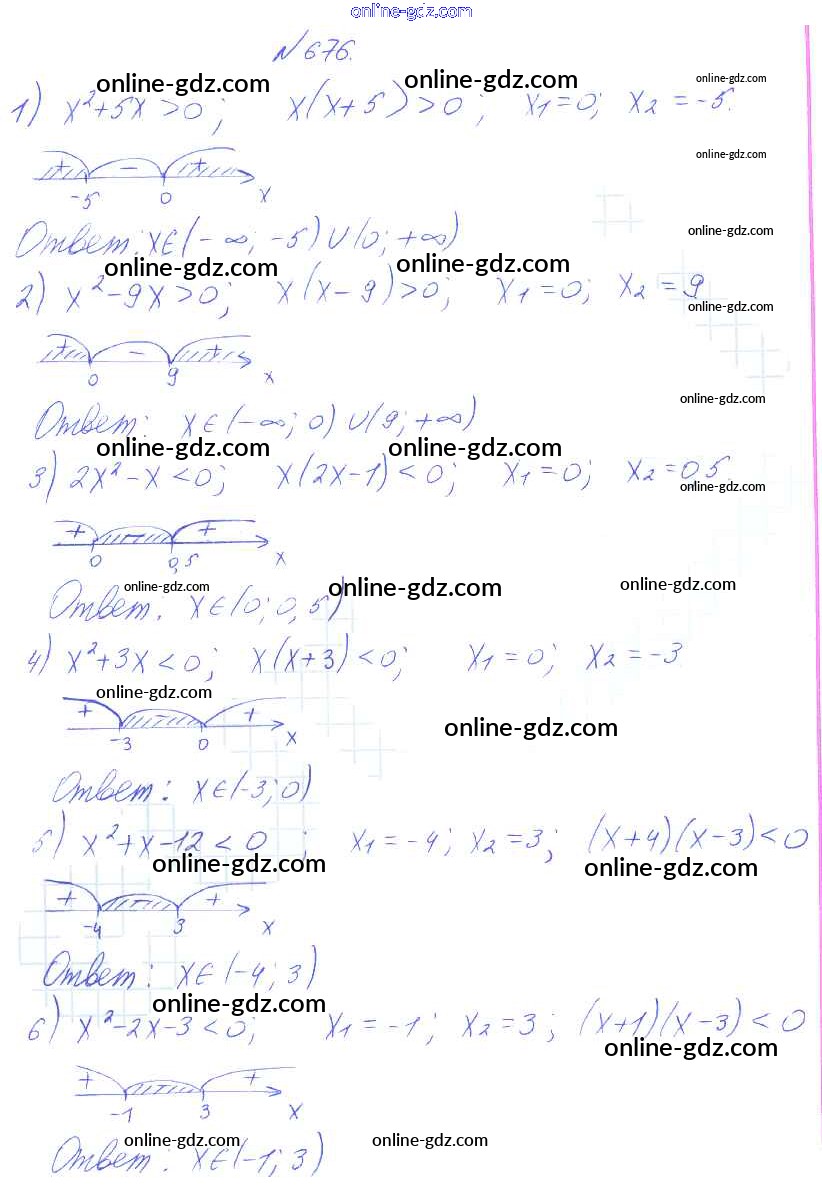 online-gdz.com
N 676.
online-gdz.com online-gdz.com online-gdz.com
1) x²+5x>0; x(x+5)>0; x1=0; x2=-5.
online-gdz.com
+ - +
-5 0 x
online-gdz.com
Ответ: x∈(-∞; -5)∪(0; +∞)
online-gdz.com online-gdz.com
2) x²-9x>0; x(x-9)>0; x1=0; x2=9
online-gdz.com
+ - +
0 9 x
online-gdz.com
Ответ: x∈(-∞; 0)∪(9; +∞)
online-gdz.com online-gdz.com
3) 2x²-x<0; x(2x-1)<0; x1=0; x2=0,5
online-gdz.com
+ - +
0 0,5 x
online-gdz.com online-gdz.com online-gdz.com
Ответ. x∈(0; 0,5)
4) x²+3x<0; x(x+3)<0; x1=0; x2=-3.
online-gdz.com
+ - +
online-gdz.com
-3 0 x
Ответ: x∈(-3; 0)
5) x²+x-12<0; x1=-4; x2=3; (x+4)(x-3)<0
online-gdz.com online-gdz.com
+ - +
-4 3 x
Ответ: x∈(-4; 3)
online-gdz.com
6) x²-2x-3<0; x1=-1; x2=3; (x+1)(x-3)<0
online-gdz.com
+ - +
-1 3 x
online-gdz.com online-gdz.com
Ответ: x∈(-1; 3)